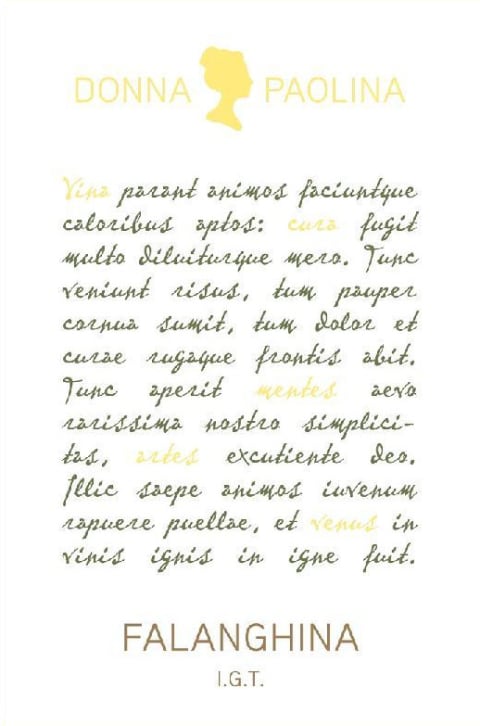 DONNA PAOLINA
Vina parant animos faciuntque
caloribus aptos: cura fugit
multo diluiturque mero. Tunc
veniunt risus, tum pauper
cornua sumit, tum dolor et
curae rugaque frontis abit.
Tunc aperit mentes aevo
rarissima nostro simplici-
tas, artes excutiente deo.
Illic saepe animos iuvenum
rapuere puellae, et venus in
vinis ignis in igne fuit.
FALANGHINA
I.G.T.